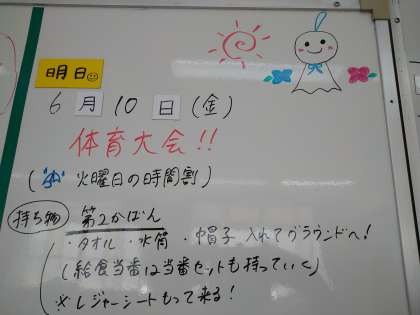 明日
6月10日(金)
体育大会!!
(☂ 火曜日の時間割)
持ち物 第2かばん
・タオル ・水筒 ・帽子 入れてグラウンドへ!
(給食当番は当番セットも持っていく)
※レジャーシートもって来る!